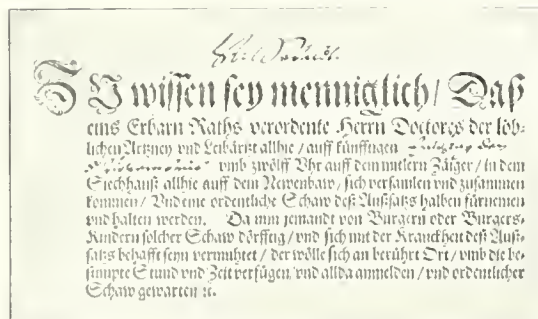 ZU wissen sey menniglich / Daß
eins Erbarn Raths verordente Herrn Doctores der löb-
lichen Artzney vnd Leibärtzt allhie / auff künfftigen
vmb zwölff Vhr auff dem mitlern Zäiger / in dem
Siechhauß allhie auff dem Newenbaw / sich versamlen vnd zusammen
kommen / Vnd eine ordentliche Schaw deß Außsatzs halben fürnemen
vnd halten werden. Da nun jemandt von Burgern oder Burgers-
Kindern solcher Schaw dörfftig / vnd sich mit der Kranckheit deß Auß-
satzs behafft seyn vermuhtet / der wölle sich an berührt Ort / vmb die be-
stimpte Stund vnd Zeit verfügen / vnd allda anmelden / vnd ordentlicher
Schaw gewarten ꝛc.